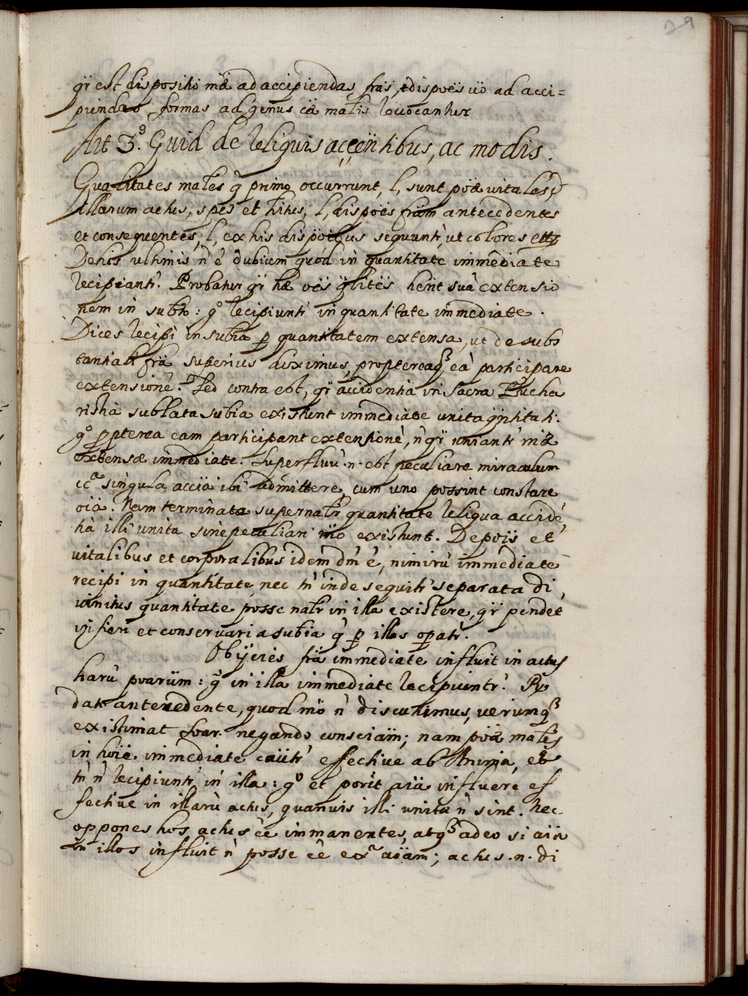 qꝫ est dispositio mã ad accipiendas frãs, et dispoẽs uõ ad acci=
piendas formas ad genus cã malis louocantur
Art 3.º Quid de reliquis accẽntibus, ac modis.
Qualitates males q̃ primo occurrunt, l, sunt potẽ vitales, et
illarum actus, spẽs et hitus, l, dispoẽs frãm antecedentes
et consequentes, l, ex his dispoẽbus sequuntr̃, ut colores etc
De his ultimis ñ ẽ dubium quod in quantitate immediate
recipiantr̃. Probatur qꝫ hæ oẽs qlitẽs hẽnt suã extensio
nem in subto: gº recipiuntr̃ in quantitate immediate.
Dices recipi in subia ꝑ quantitatem extensa, ut de subs
tantiali frã superius diximus, proptereaqꝫ eã participare
extensionẽ. Sed contra est, qꝫ accidentia in Sacra Eucha
ristia sublata subia existunt immediate unita qntitati.
gº ꝓpterea eam participant extensionẽ, ñ qꝫ uniantr̃ mæ
extensæ immediate. Superfluũ .n. est peculiare miraculum
cª singula accĩa ibi admittere, cum uno possint constare
oĩa. Nam terminata supernalr̃ quantitate reliqua accidẽ,
tia illi unita sine peculiari mõ existunt. De poĩs et
vitalibus et corporalibus idem dm̃ ẽ, nimirũ immediate
recipi in quantitate, nec tñ inde sequitr̃ separata di,
vinitus quantitate posse nalr̃ in illa existere, qꝫ pendet
in fieri et conservari a subia q̃ ꝑ illas opatr̃.
Obijcies frã immediate influit in actus
harũ poarum: gº in illa immediate recipiuntr̃. Rº
dato antecedente, quod mõ ñ discutimus, verumqꝫ
existimat Soar. negando consciam; nam poæ males
in hoĩe immediate cãntr̃ effective ab Anima, et
tñ ñ recipiuntr̃ in illa: gº et poterit aĩa influere ef
fective in illarũ actus, quamvis illi uniti ñ sint. Nec
oppones hos actus ẽe immanentes, atqꝫ adeo si aĩa
in illos influit ñ posse ẽe exª aĩam; actus .n. di